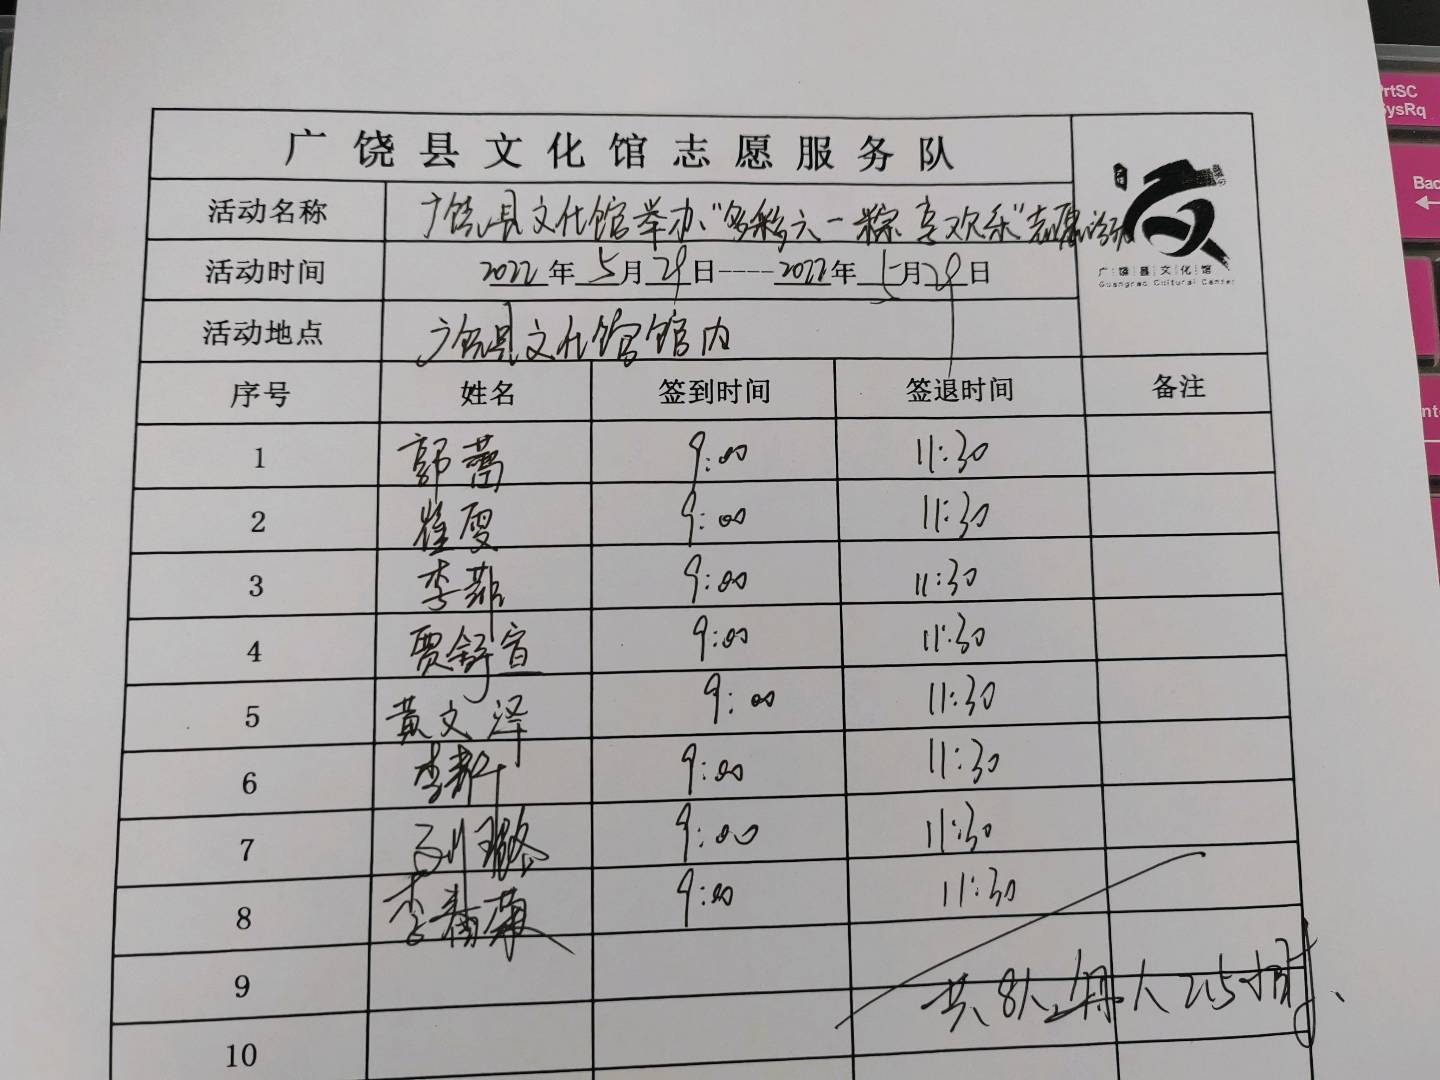 广饶县文化馆志愿服务队
活动名称 广饶县文化馆举办"多彩六一 粽享欢乐"志愿活动
广饶县文化馆
Guangrao Cultural Center
活动时间 2022年5月29日----2022年5月29日
活动地点 广饶县文化馆馆内
序号 姓名 签到时间 签退时间 备注
1 郭蕾 9:00 11:30
2 崔雯 9:00 11:30
3 李 9:00 11:30
4 贾舒宣 9:00 11:30
5 黄文泽 9:00 11:30
6 李 9:00 11:30
7 刘璐 9:00 11:30
8 李 9:00 11:30
9
共8人,每人2.5小时、
10
PrtSC
SysRq
Bac
←